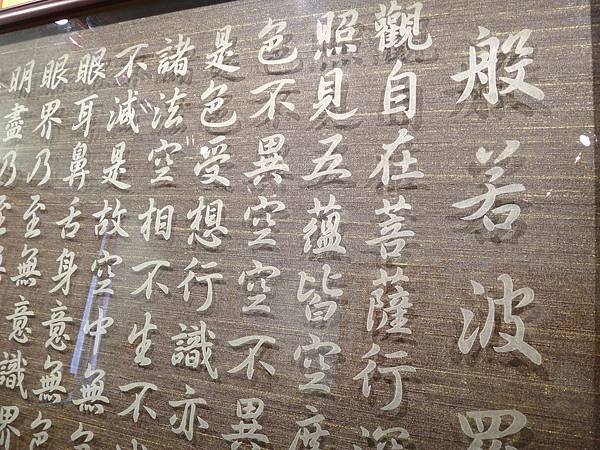 般若波羅
觀自在菩薩行深
照見五蘊皆空度
色不異空空不異
是色受想行識亦
諸法空相不生不
不減是故空中無色
眼耳鼻舌身意無色
眼界乃至無意識界
明盡乃至